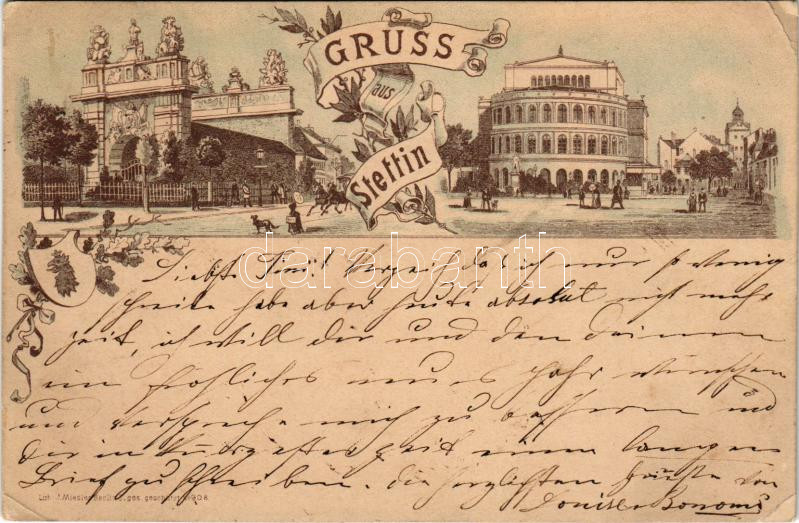 GRUSS
aus
Stettin
darabanth
Liebste Verzeih daß ich nur so wenig
schreibe habe aber heute absolut nicht mehr
zeit, ich will dir und den deinen
ein fröhliches neues Jahr wünschen
und verspreche mich zu bessern und
Dir in einen langen
Brief zu schreiben. die herzlichsten Grüße von
Louise Bonomi
Lith. J. Miesler, Berlin S. ges. geschützt 1908